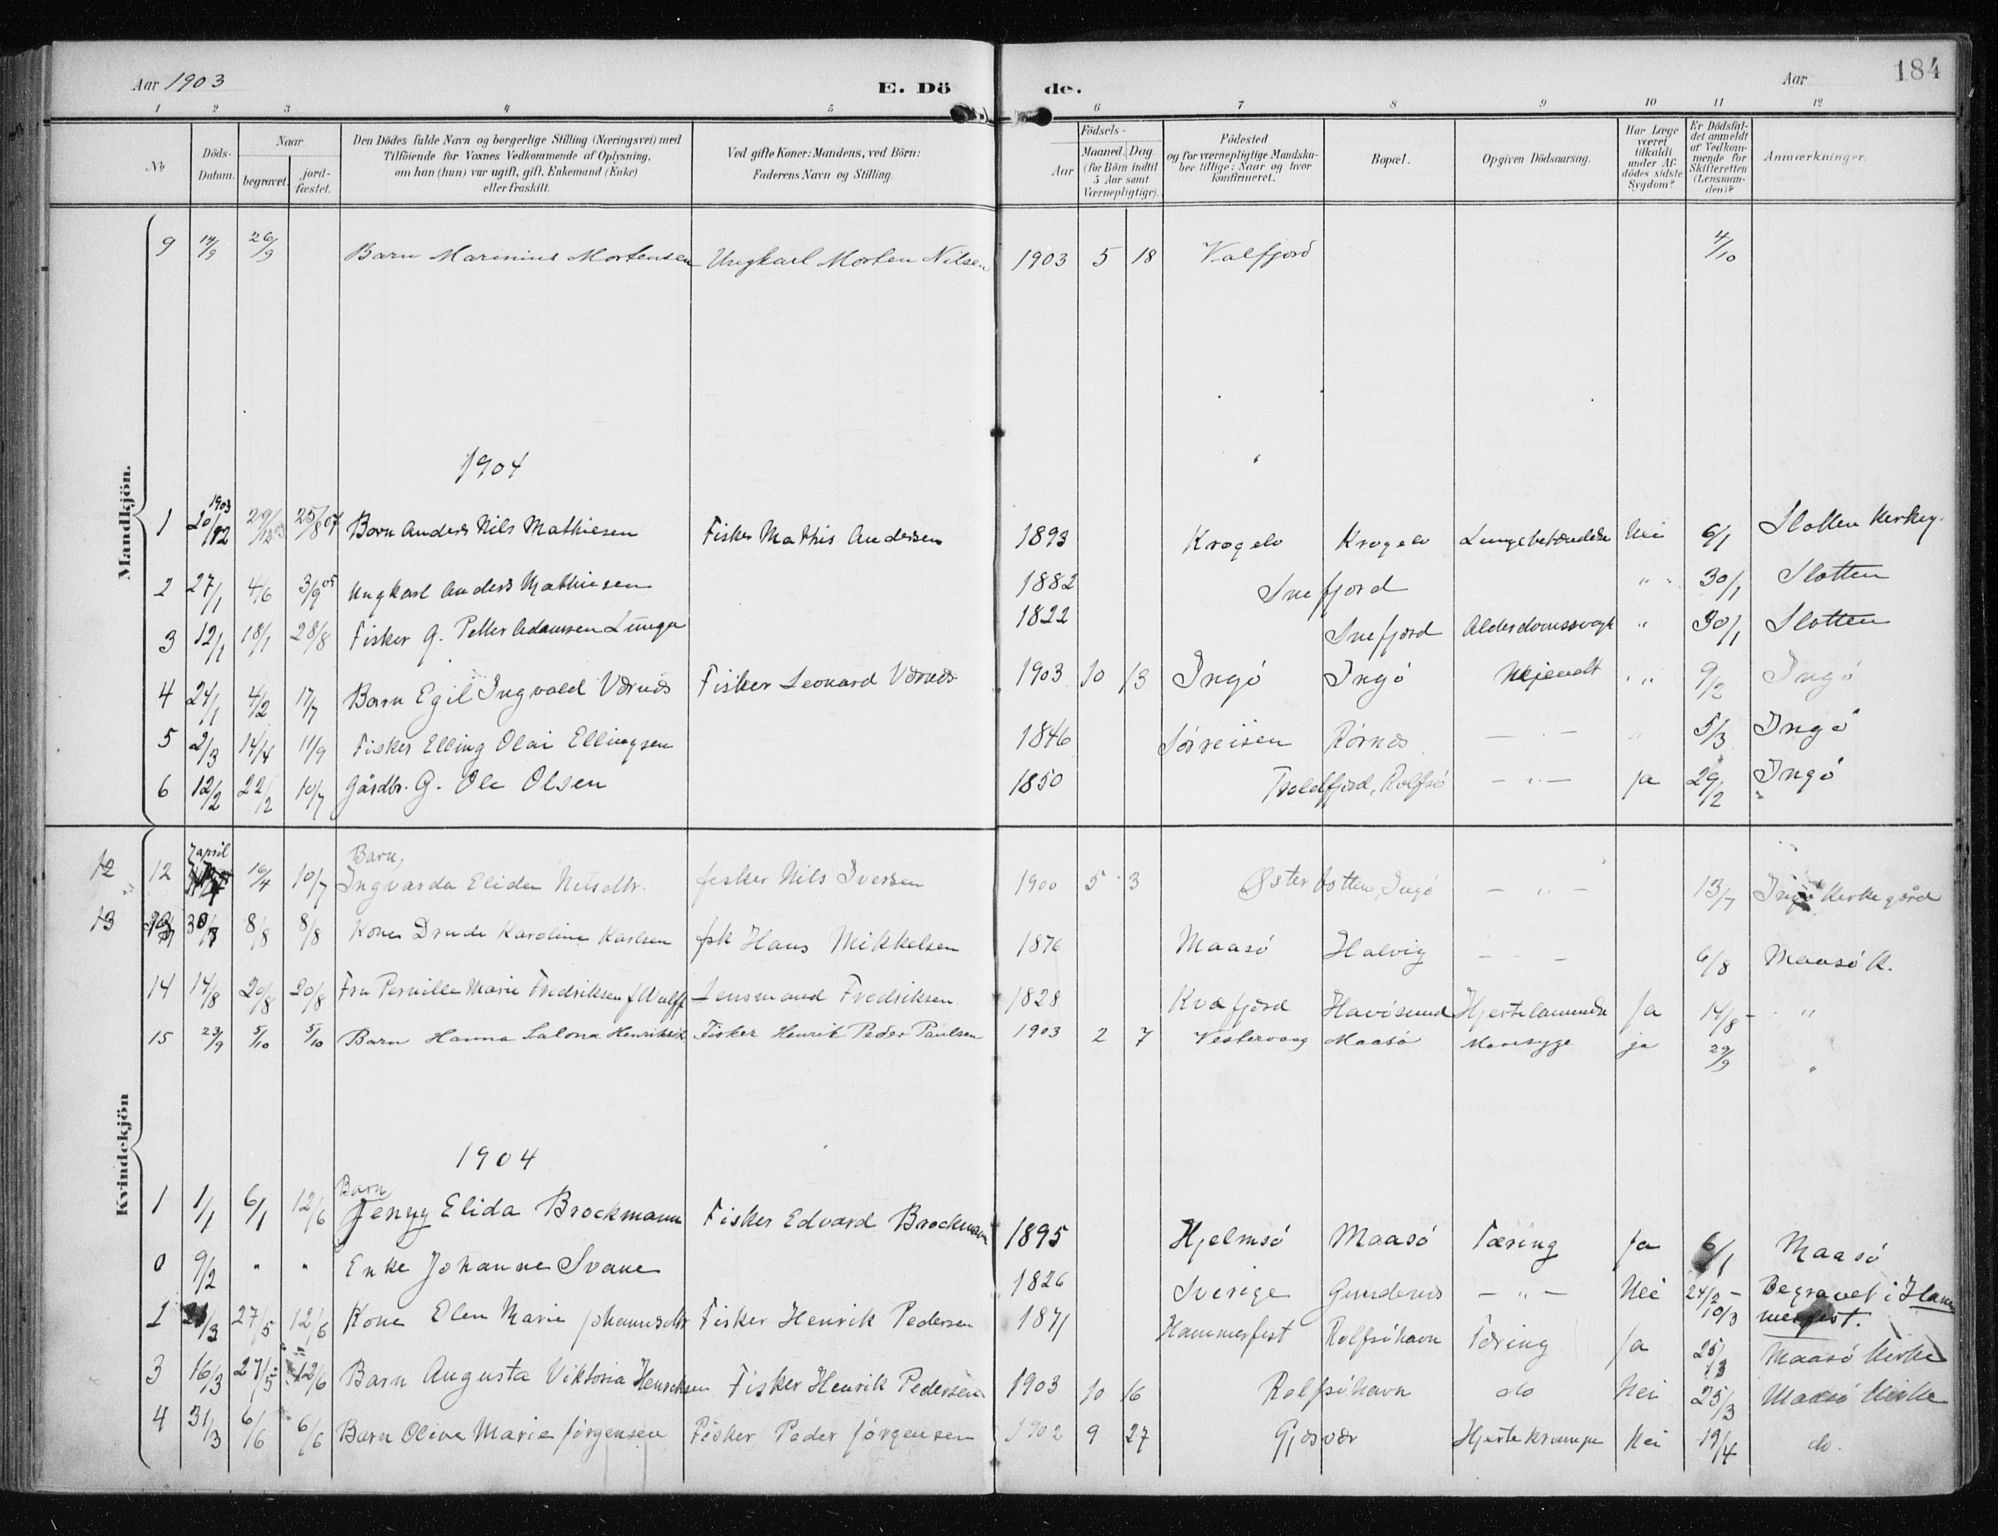 Aar 1903 E. Döde. Aar 184
1 2 3 4 5 6 7 8 9 10 11 12
No. Döds-Datum. Naar begravet. jord-fæstet. Den Dödes fulde Navn og borgerlige Stilling (Næringsvei) med Tilföiende for Voxnes Vedkommende af Oplysning, om han (hun) var ugift, gift, Enkemand (Enke) eller fraskilt. Ved gifte Koner: Mandens, ved Börn: Faderens Navn og Stilling. Födsels- Aar Maaned. Dag. (for Börn indtil 5 Aar samt Værnepligtige). Födested og for værnepligtige Mandska-ber tillige: Naar og hvor konfirmeret. Bopæl. Opgiven Dödsaarsag. Har Læge været tilkaldt under Af-dödes sidste Sygdom? Er Dödsfal-det anmeldt af Vedkom-mende for Skifteretten (Lensman-den)? Anmærkninger.
Mandkjön.
9 14/9 26/9 Barn Marinius Mortensen Ungkarl Morten Nilsen 1903 5 18 Valfjord 4/10
1904
1 1903 20/12 29/12 03 25/8 04 Barn Anders Nils Mathiesen Fisker Mathis Andersen 1893 Krogelv Krogelv Lungebetændelse Nei 6/1 Slotten Kirkeg.
2 27/1 4/6 3/9 05 Ungkarl Anders Mathiesen 1882 Snefjord " " 30/1 Slotten
3 12/1 18/1 28/8 Fisker G. Petter Adamsen 1822 Snefjord Alderdomssvagh " 30/1 Slotten
4 24/1 4/2 17/7 Barn Egil Ingvald Værnes Fisker Leonard Værnes 1903 10 13 Ingö Ingö Ukjendt " " 9/2 Ingö
5 2/3 14/4 11/9 Fisker Elling Olai Ellingsen 1846 Sörreisen Rörnes — " — " 5/3 Ingö
6 12/2 22/2 10/7 Gårdbr. G. Ole Olsen 1850 Troldfjord, Rolfsö — " — ja 29/2 Ingö
Kvindekjön
12 12 7 april 16/4 10/7 Barn Ingvarda Elida Nilsdtr. fisker Nils Iversen 1900 5 3 Øster , Ingö — " — 13/7 Ingö Kirkegård
13 30/7 8/8 8/8 Kone Drude Karoline Karlsen fsk Hans Mikkelsen 1876 Maasö Halvig - - - 6/8 Maasö K.
14 14/8 20/8 20/8 Fru Pernille Marie Fredriksen f Wulff Lensmand Fredriksen 1828 Kvæfjord Havösund Ja 14/8 "
15 23/9 5/10 5/10 Barn Hanna Salona Fisker Henrik Peder Paulsen 1903 2 7 Vestervaag Maasö Mavesyge ja 29/9 "
1904
1 1/1 6/1 12/6 Barn Jenny Elida Brockmann Fisker Edvard Brockmann 1895 Hjelmsö Maasö Tæring Ja 6/1 Maasö
0 9/2 " " Enke Johanne Svane 1826 Sverige Gundernes — " — Nei 24/2 - 10/3 Begravet i Hammerfest.
27/5 12/6 Kone Marie Johannesdtr Fisker Henrik Pedersen 1871 Hammerfest Rolfsöhavn Tæring Ja 25/3 Maasö Kirke
3 16/3 27/5 12/6 Barn Augusta Viktoria Henriksen Fisker Henrik Pedersen 1903 10 16 Rolfsöhavn do Nei 25/3 Maasö Kirke
4 31/3 6/6 6/6 Barn Oliva Marie Jörgensen Fisker Peder Jörgensen 1902 9 27 Gjæsvær Hjertekrampe Nei 19/4 do.